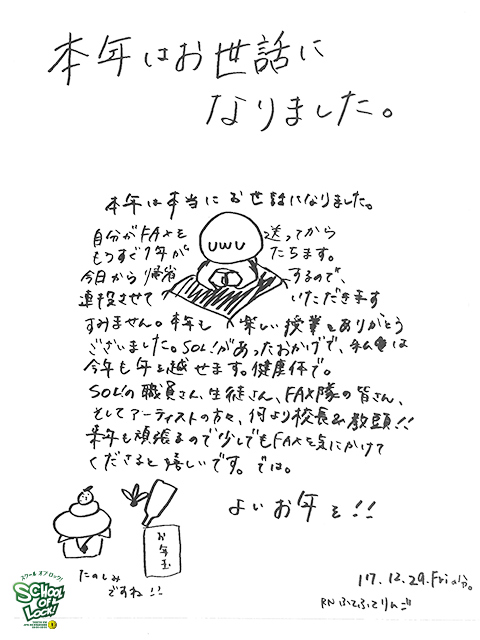 本年はお世話に
なりました。
本年は本当にお世話になりました。
自分がFAXを送ってから
もうすぐ1年がたちます。
今日から帰省するので、
連投させていただきます
すみません。本年も楽しい授業をありがとう
ございました。SOL!があったおかげで、私は
今年も年を越せます。健康体で。
SOL!の職員さん、生徒さん、FAX隊の皆さん、
そしてアーティストの方々、何より校長&教頭!!
来年も頑張るので少しでもFAXを気にかけて
くださると嬉しいです。では。
よいお年を!!
UWU
お年玉
たのしみ
ですね!!
'17.12.29.Fri
RNふてふてりんご
スクール オブ ロック!
SCHOOL
OF
LOCK!